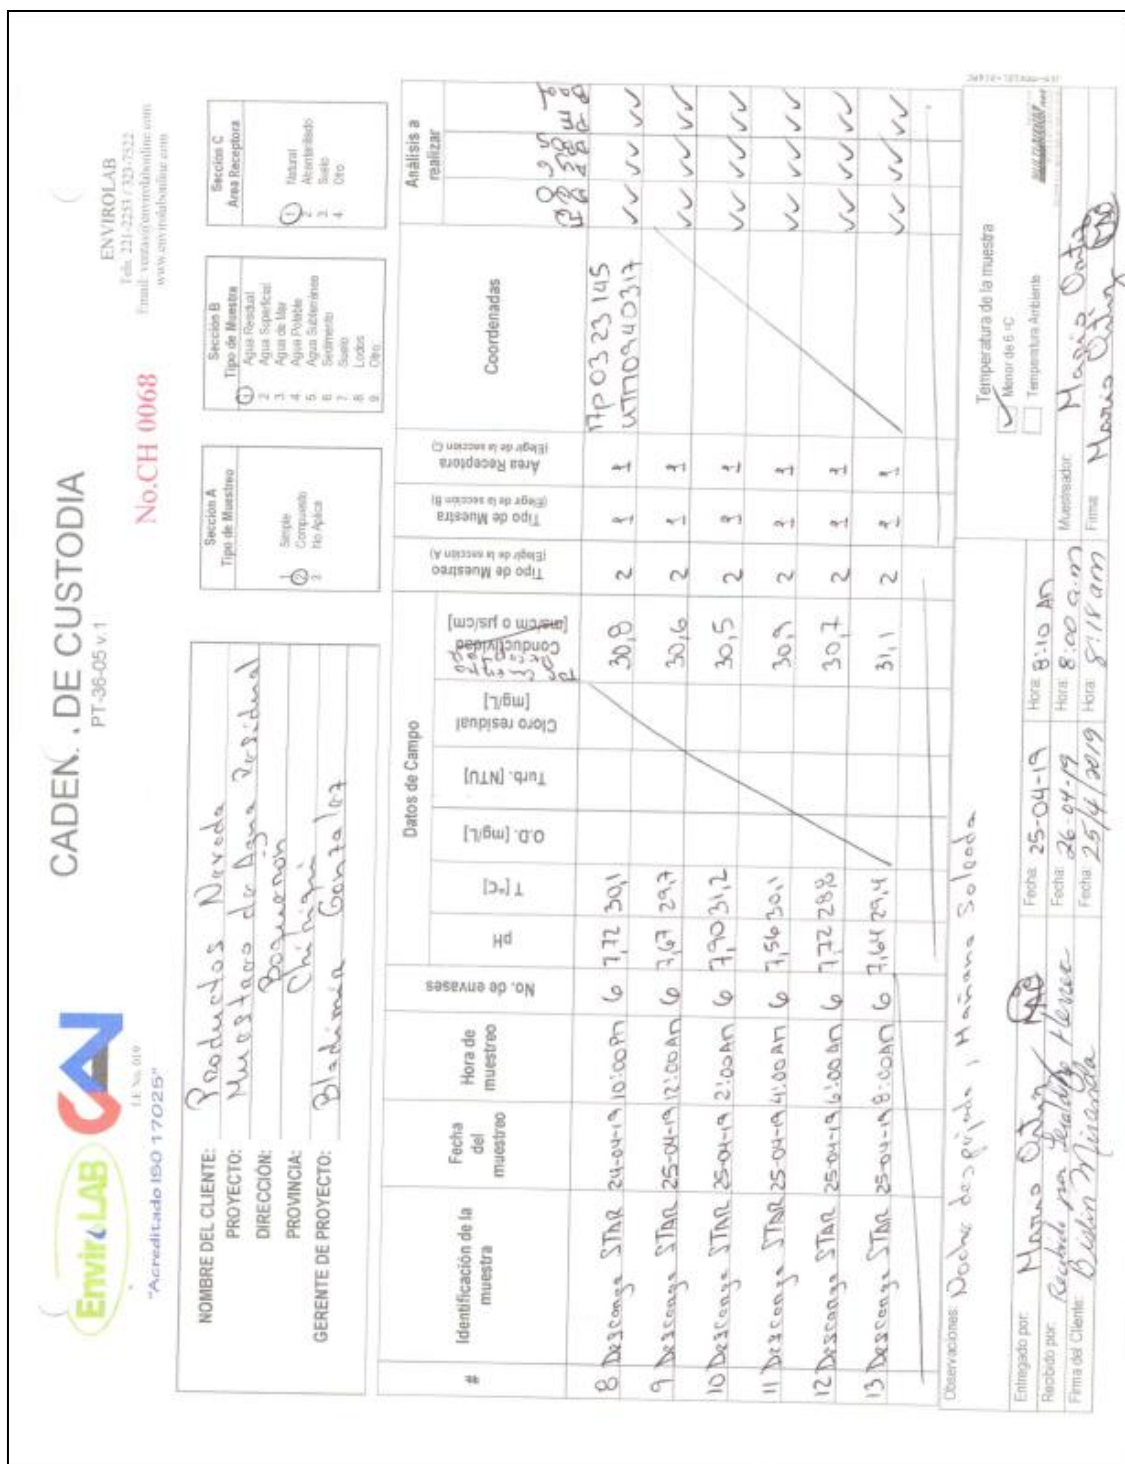 EnviroLAB
CAI
I.E. No. 019
"Acreditado ISO 17025"
CADEN. . DE CUSTODIA
PT-36-05 v.1
No.CH 0068
ENVIROLAB
Tels. 221-2253 / 323-7522
Email: ventas@envirolabonline.com
www.envirolabonline.com
NOMBRE DEL CLIENTE: Productos Nevada
PROYECTO: Muestreo de Agua Residual
DIRECCIÓN: Boquerón
PROVINCIA: Chiriquí
GERENTE DE PROYECTO: Bladimir González
Sección A
Tipo de Muestreo
1 Simple
2 Compuesto
3 No Aplica
Sección B
Tipo de Muestra
1 Agua Residual
2 Agua Superficial
3 Agua de Mar
4 Agua Potable
5 Agua Subterránea
6 Sedimento
7 Suelo
8. Lodos
9. Otro
Sección C
Area Receptora
1. Natural
2. Alcantarillado
3. Suelo
4. Otro
# Identificación de la muestra Fecha del muestreo Hora de muestreo No. de envases
Datos de Campo
pH T [°C] O.D. [mg/L] Turb. [NTU] Cloro residual [mg/L] Conductividad [ms/cm o µs/cm]
Tipo de Muestreo (Elegir de la sección A)
Tipo de Muestra (Elegir de la sección B)
Área Receptora (Elegir de la sección C)
Coordenadas
Análisis a realizar
8 Descarga STAR 24-04-19 10:00 PM 6 7,72 30,1 30,8 2 1 1 17P 0323145 UTM 0940317 ✓✓ ✓✓ ✓✓
9 Descarga STAR 25-04-19 12:00 AM 6 7,67 29,7 30,6 2 1 1 ✓✓ ✓✓ ✓✓
10 Descarga STAR 25-04-19 2:00 AM 6 7,90 31,2 30,5 2 1 1 ✓✓ ✓✓ ✓✓
11 Descarga STAR 25-04-19 4:00 AM 6 7,56 30,1 30,9 2 1 1 ✓✓ ✓✓ ✓✓
12 Descarga STAR 25-04-19 6:00 AM 6 7,72 28,8 30,7 2 1 1 ✓✓ ✓✓ ✓✓
13 Descarga STAR 25-04-19 8:00 AM 6 7,64 29,4 31,1 2 1 1 ✓✓ ✓✓ ✓✓
Observaciones: Noche despejada, Mañana Soleada
Temperatura de la muestra
✓ Menor de 6 °C
Temperatura Ambiente
Entregado por: Mario Ortiz Fecha: 25-04-19 Hora: 8:10 AM Muestreador: Mario Ortiz
Recibido por: Recibido por Fecha: 26-04-19 Hora: 8:00 a.m Firma: Mario Ortiz
Firma del Cliente: Bislin Miranda Fecha: 25/4/2019 Hora: 8:18 am